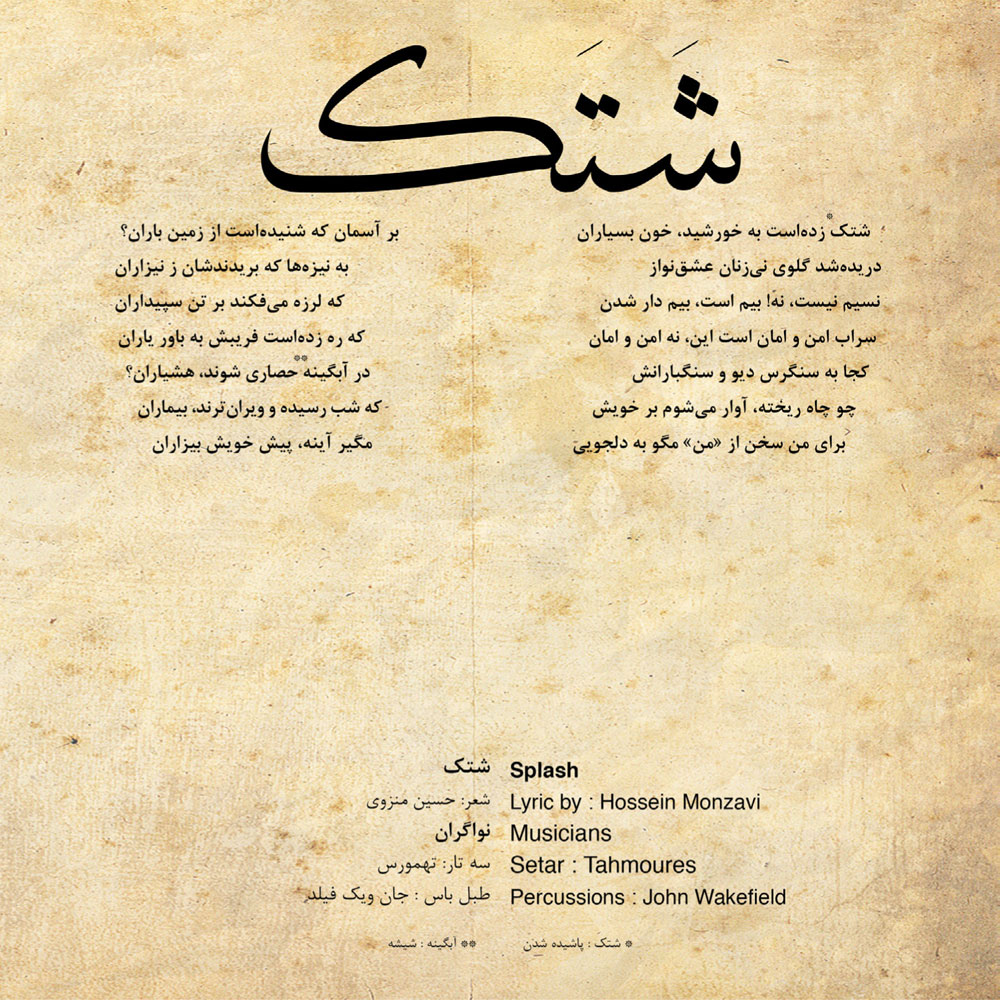 شَتَک
شتک* زده‌است به خورشید، خون بسیاران بر آسمان که شنیده‌است از زمین باران؟
دریده‌شد گلوی نی‌زنان عشق‌نواز به نیزه‌ها که بریدندشان ز نیزاران
نسیم نیست، نه! بیم است، بیم دار شدن که لرزه می‌فکند بر تن سپیداران
سراب امن و امان است این، نه امن و امان که ره زده‌است فریبش به باور یاران
کجا به سنگرس دیو و سنگبارانش در آبگینه** حصاری شوند، هشیاران؟
چو چاه ریخته، آوار می‌شوم بر خویش که شب رسیده و ویران‌ترند، بیماران
برای من سخن از «من» مگو به دلجویی مگیر آینه، پیش خویش بیزاران
شتک Splash
شعر: حسین منزوی Lyric by : Hossein Monzavi
نواگران Musicians
سه تار: تهمورس Setar : Tahmoures
طبل باس : جان ویک فیلد Percussions : John Wakefield
* شتک : پاشیده شدن ** آبگینه : شیشه